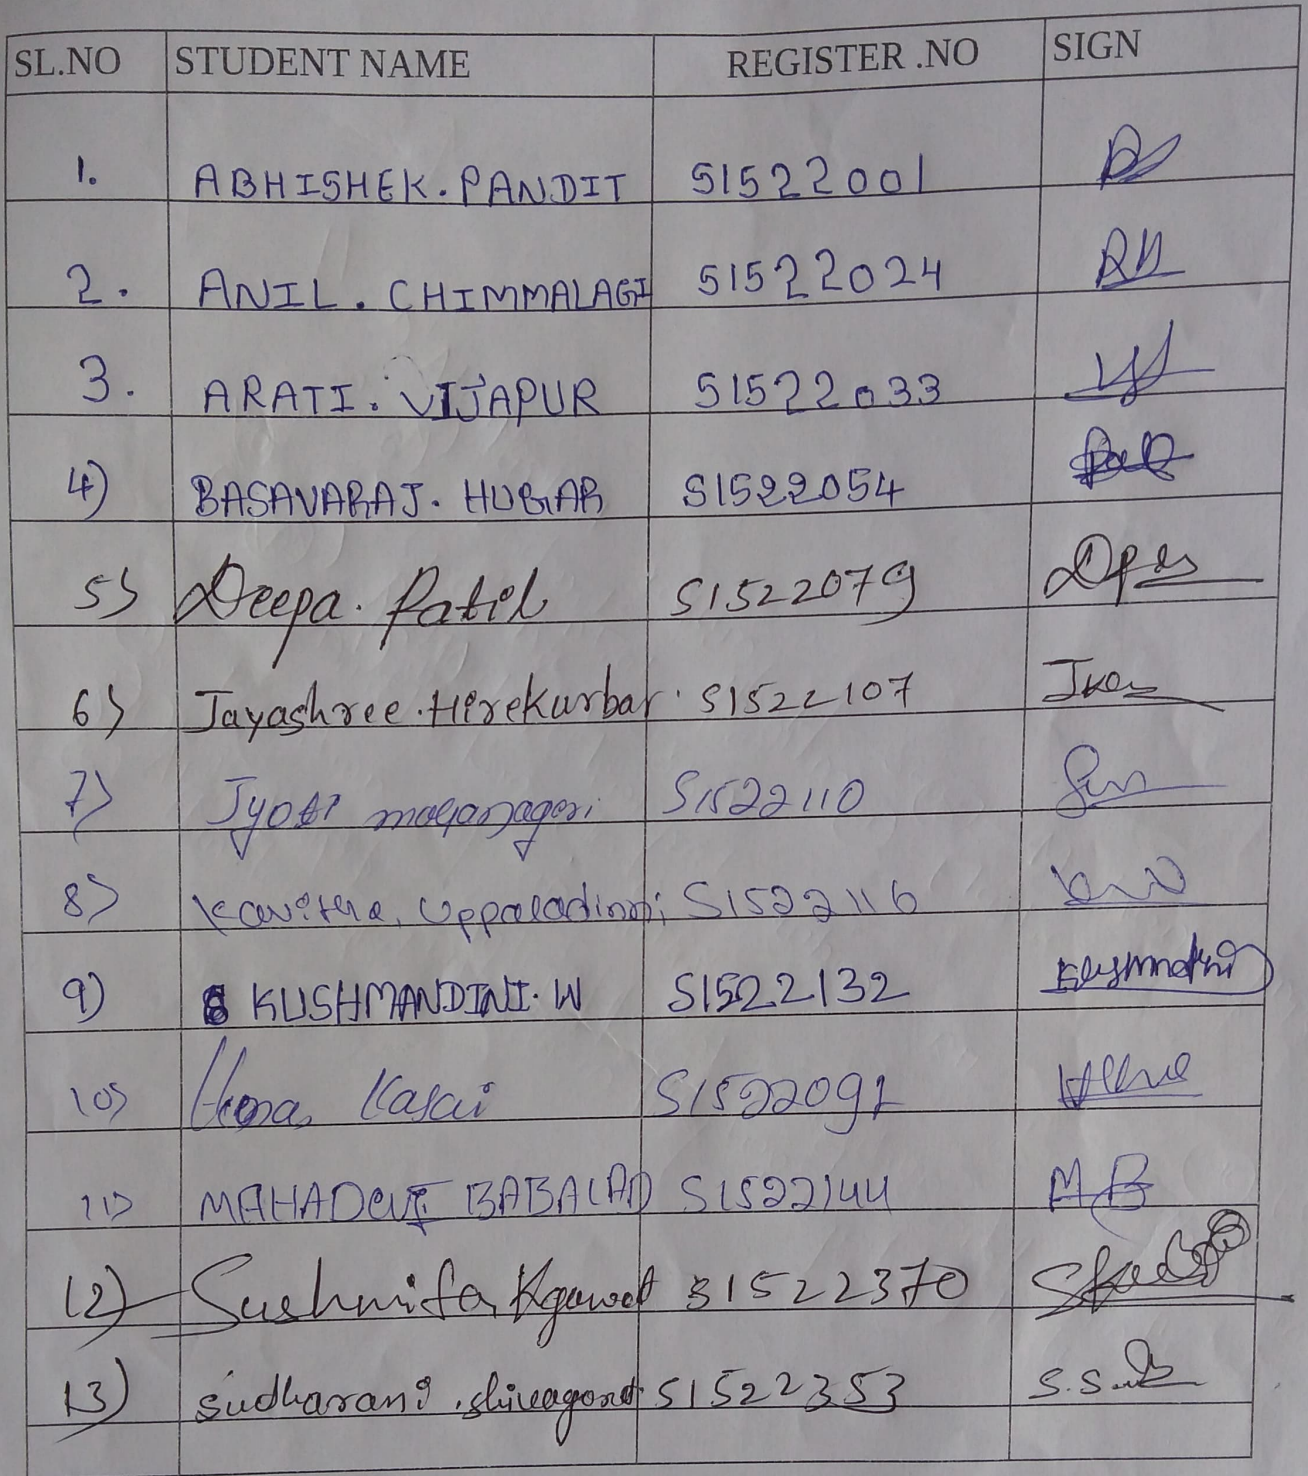 SL.NO STUDENT NAME REGISTER .NO SIGN
1. ABHISHEK. PANDIT S1522001
2. ANIL. CHIMMALAGI S1522024
3. ARATI. VIJAPUR S1522033
4) BASAVARAJ. HUGAR S1522054
5) Deepa. Patil S1522079
6) Jayashree. Hirekurbar. S1522107
7) Jyoti S1522110
8) Kavitha, Uppaladinni S1522116
9) KUSHMANDINI. W S1522132
10) Kasai S1522091
11) MAHADEVI BABALAD S1522144 MB
12) Sushmita, S1522370
13) Sudharani. S1522353